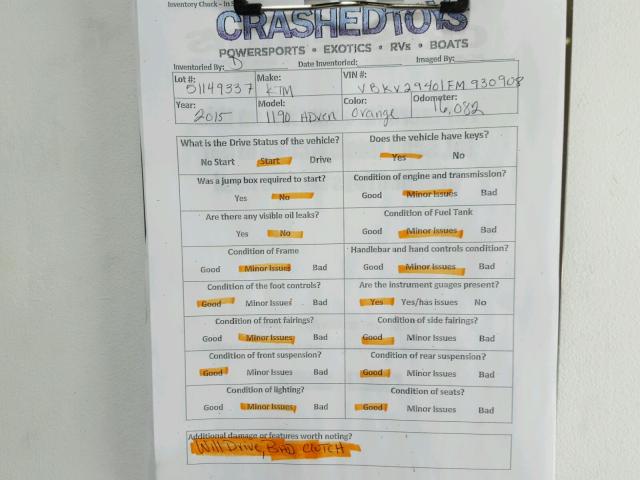 Inventory Check – In S
CRASHEDTOYS
POWERSPORTS • EXOTICS • RVs • BOATS
Inventoried By: D Date Inventoried: Imaged By:
Lot #: 51149337 Make: KTM VIN #: VBKV29401FM930908
Year: 2015 Model: 1190 ADven Color: Orange Odometer: 16,082
What is the Drive Status of the vehicle? Does the vehicle have keys?
No Start Start Drive Yes No
Was a jump box required to start? Condition of engine and transmission?
Yes No Good Minor Issues Bad
Are there any visible oil leaks? Condition of Fuel Tank
Yes No Good Minor Issues Bad
Condition of Frame Handlebar and hand controls condition?
Good Minor Issues Bad Good Minor Issues Bad
Condition of the foot controls? Are the instrument guages present?
Good Minor Issues Bad Yes Yes/has issues No
Condition of front fairings? Condition of side fairings?
Good Minor Issues Bad Good Minor Issues Bad
Condition of front suspension? Condition of rear suspension?
Good Minor Issues Bad Good Minor Issues Bad
Condition of lighting? Condition of seats?
Good Minor Issues Bad Good Minor Issues Bad
Additional damage or features worth noting?
Will Drive, BAD CLUTCH